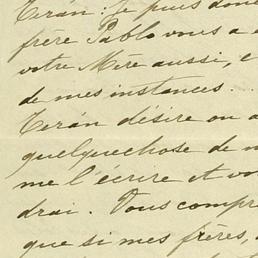 Terán: Je puis donc
frère Pablo vous a
votre Mère aussi, e
de mes instances..
Terán désire ou a
quelquechose de m
me l'écrire et vo
drai. Vous compr
que si mes frères,